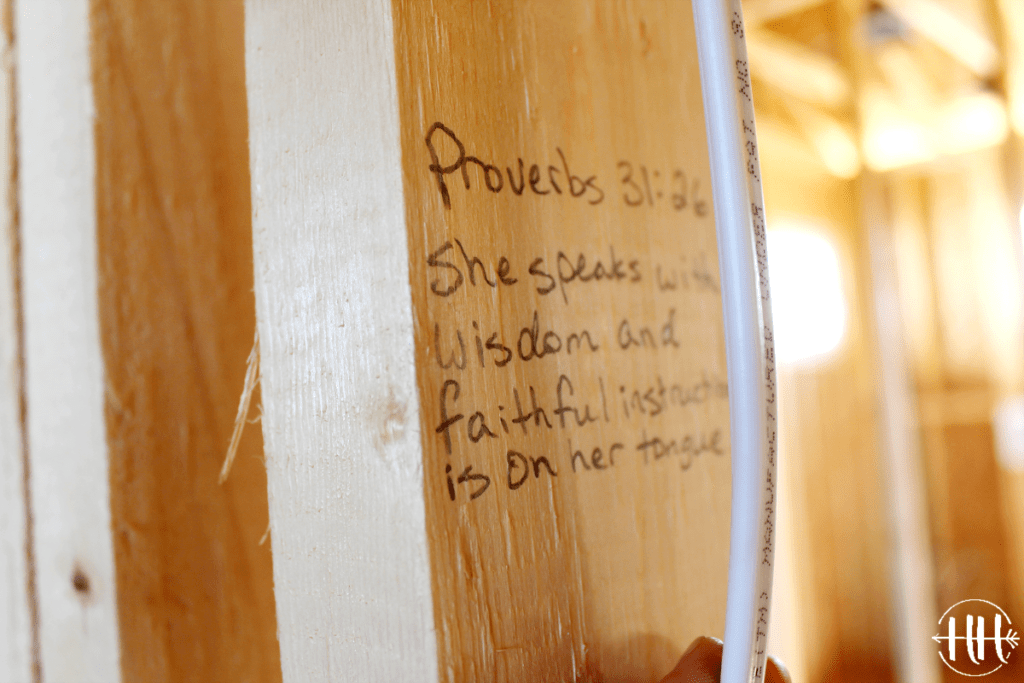 Proverbs 31:26
She speaks with
wisdom and
faithful instruction
is on her tongue
HH